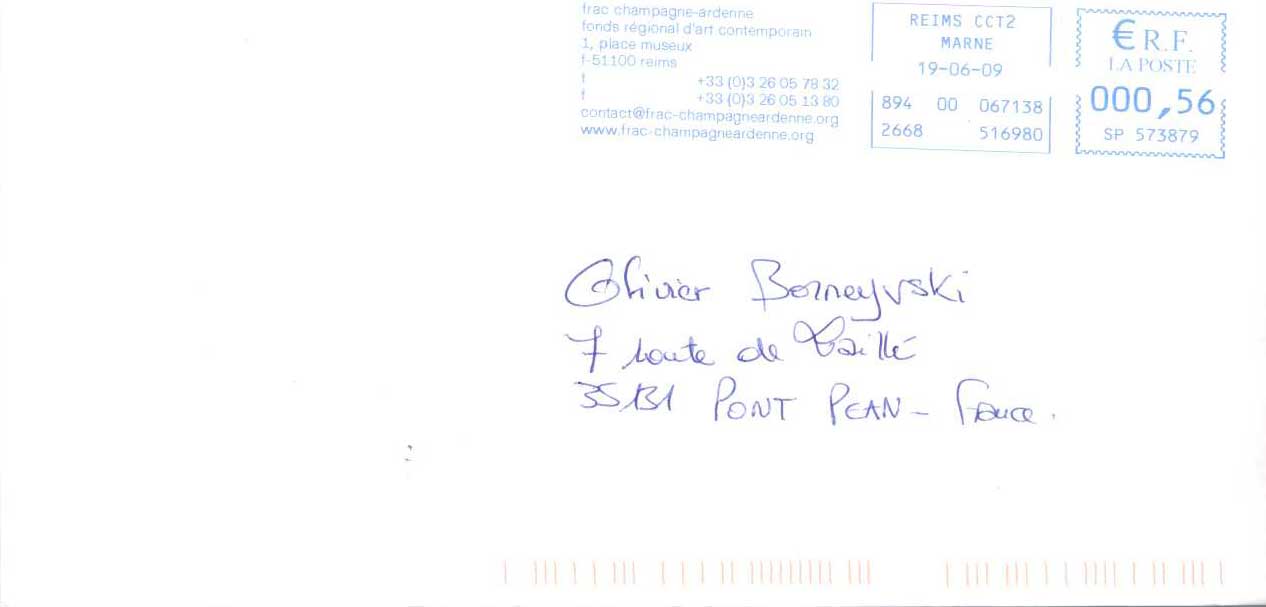 frac champagne-ardenne
fonds régional d'art contemporain
1, place museux
f-51100 reims
t +33 (0)3 26 05 78 32
f +33 (0)3 26 05 13 80
contact@frac-champagneardenne.org
www.frac-champagneardenne.org
REIMS CCT2
MARNE
19-06-09
894 00 067138
2668 516980
€ R.F.
LA POSTE
000,56
SP 573879
Olivier
7 route de
35131 PONT PEAN - France.